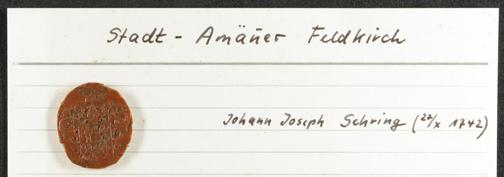 Stadt - Amäner Feldkirch
Johann Joseph Sehring (27/x 1742)